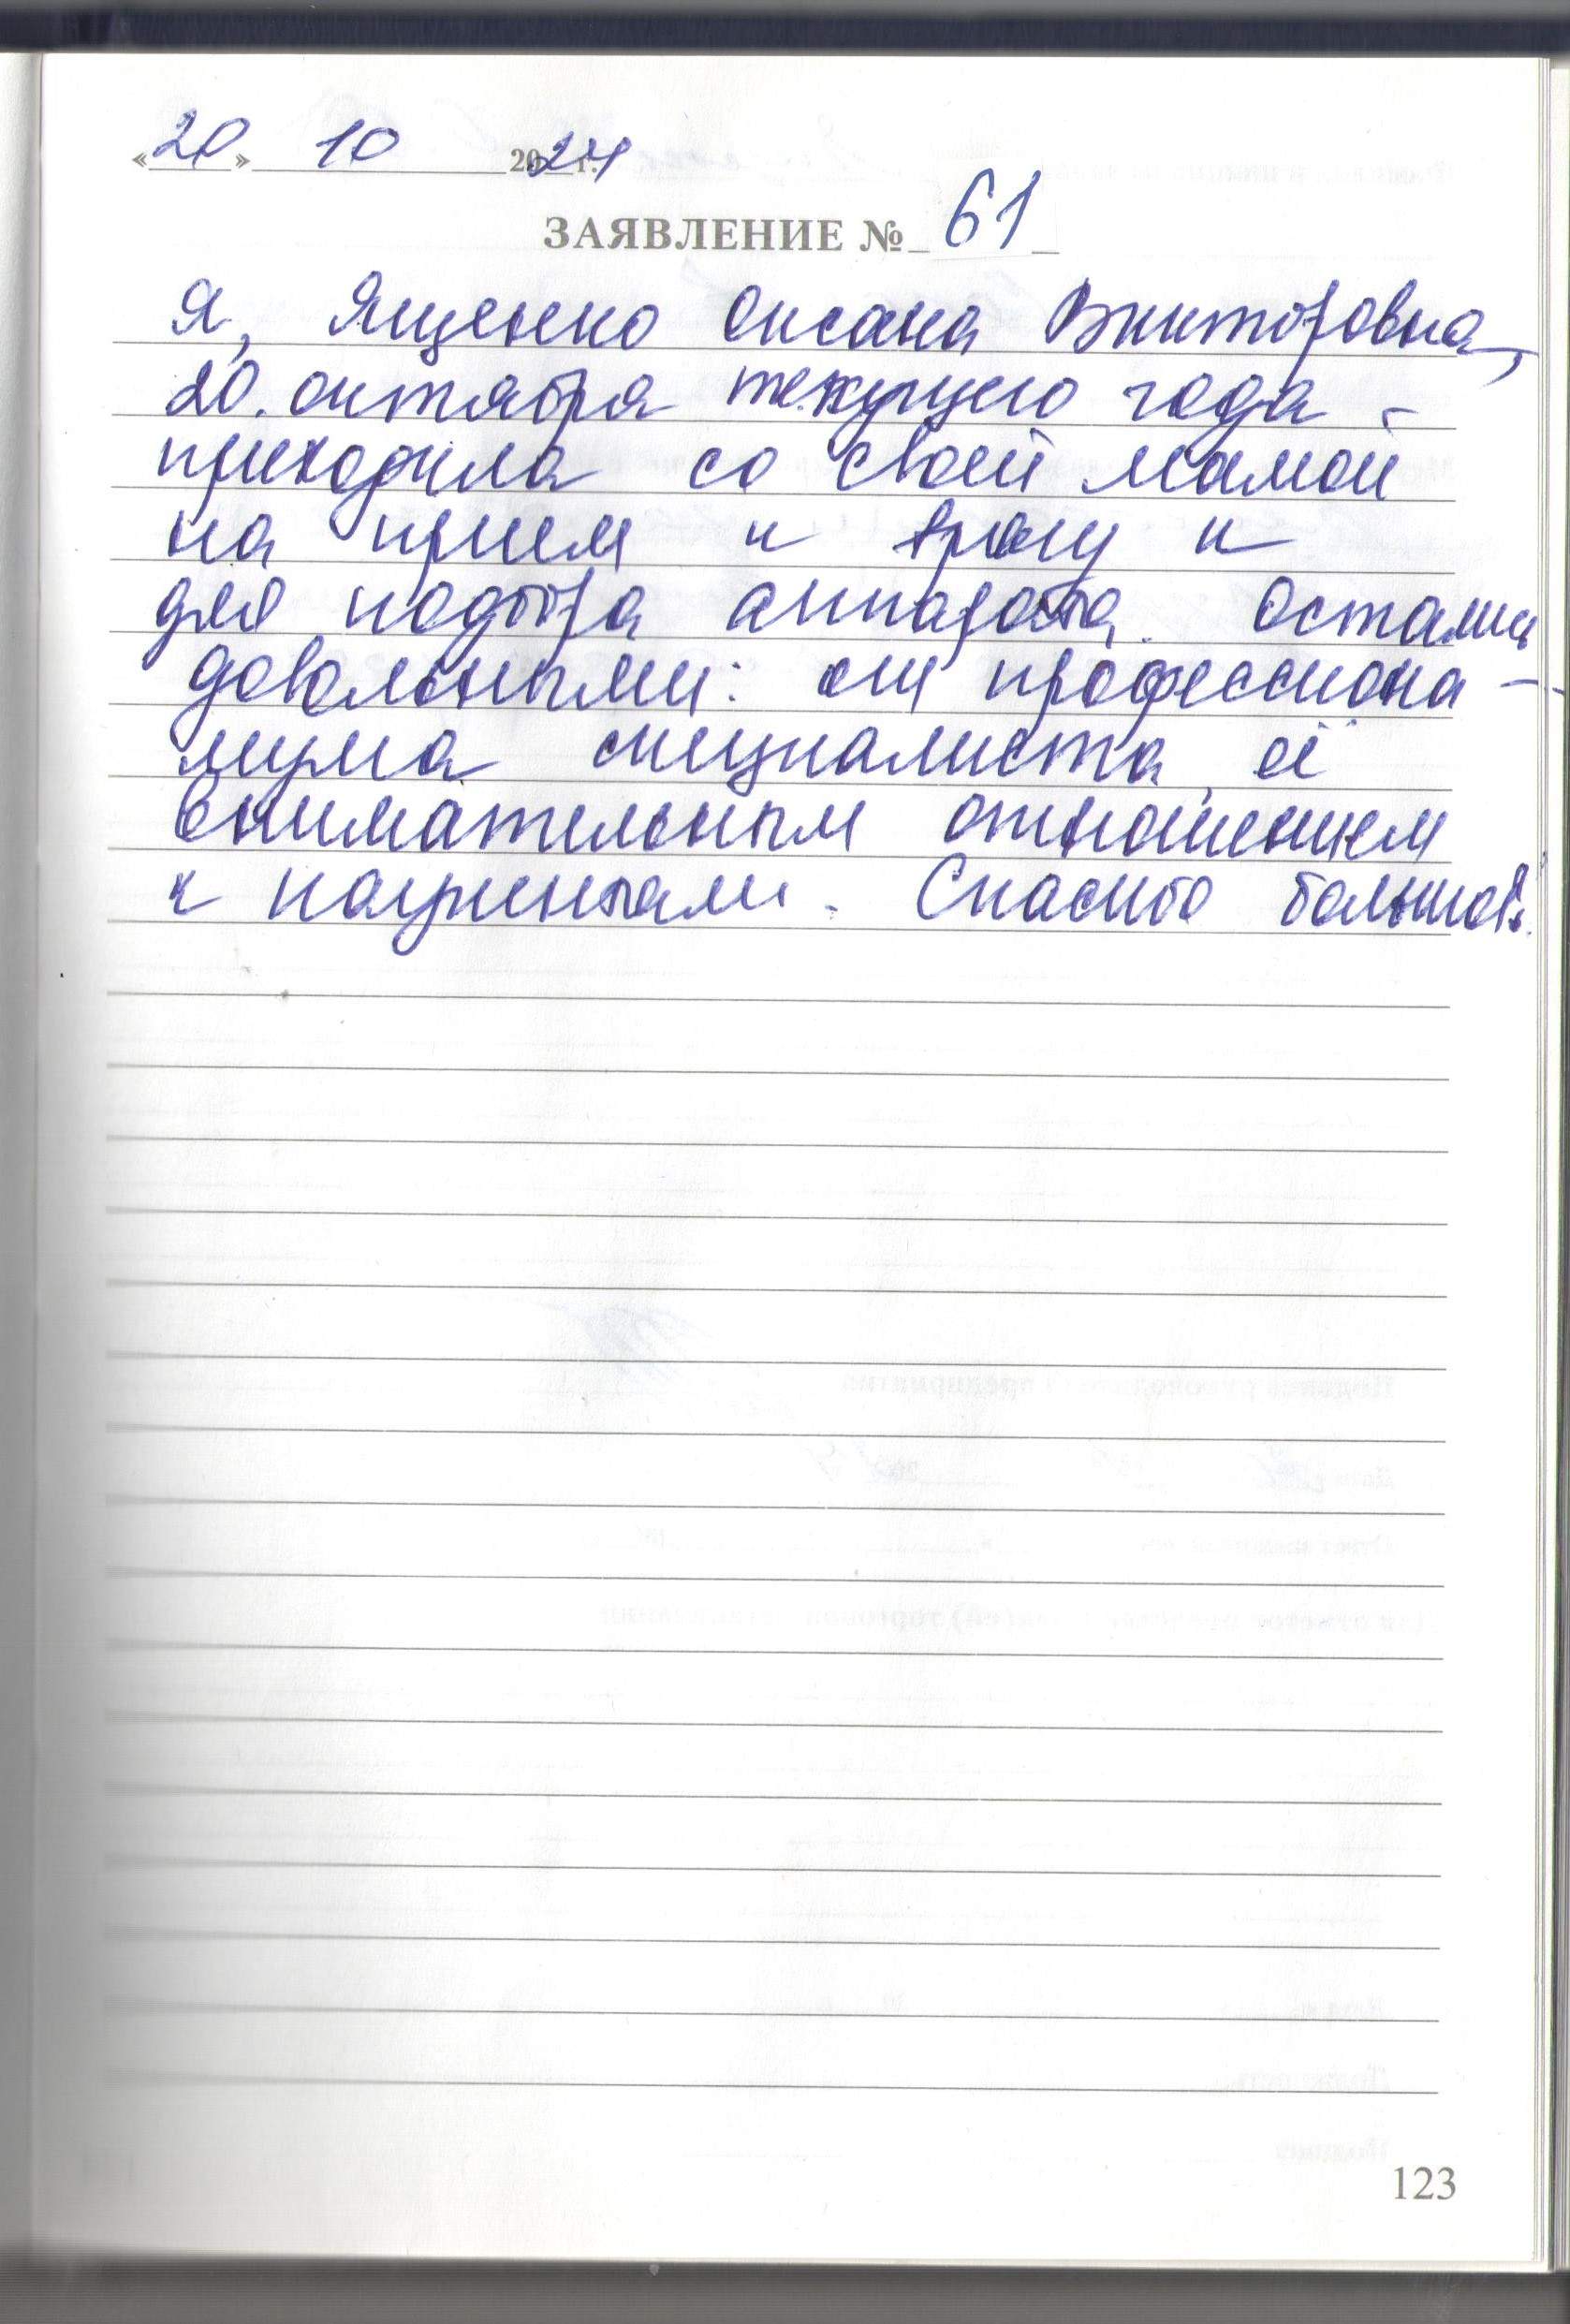 «20» 10 2024 г.
ЗАЯВЛЕНИЕ № 61
Я, Ященко Оксана Викторовна,
20. октября текущего года -
приходила со своей мамой
на прием к врачу и
для подбора аппарата. Остались
довольными: от профессиона-
лизма специалиста, её
внимательным отношением
к пациентам. Спасибо большое.
123